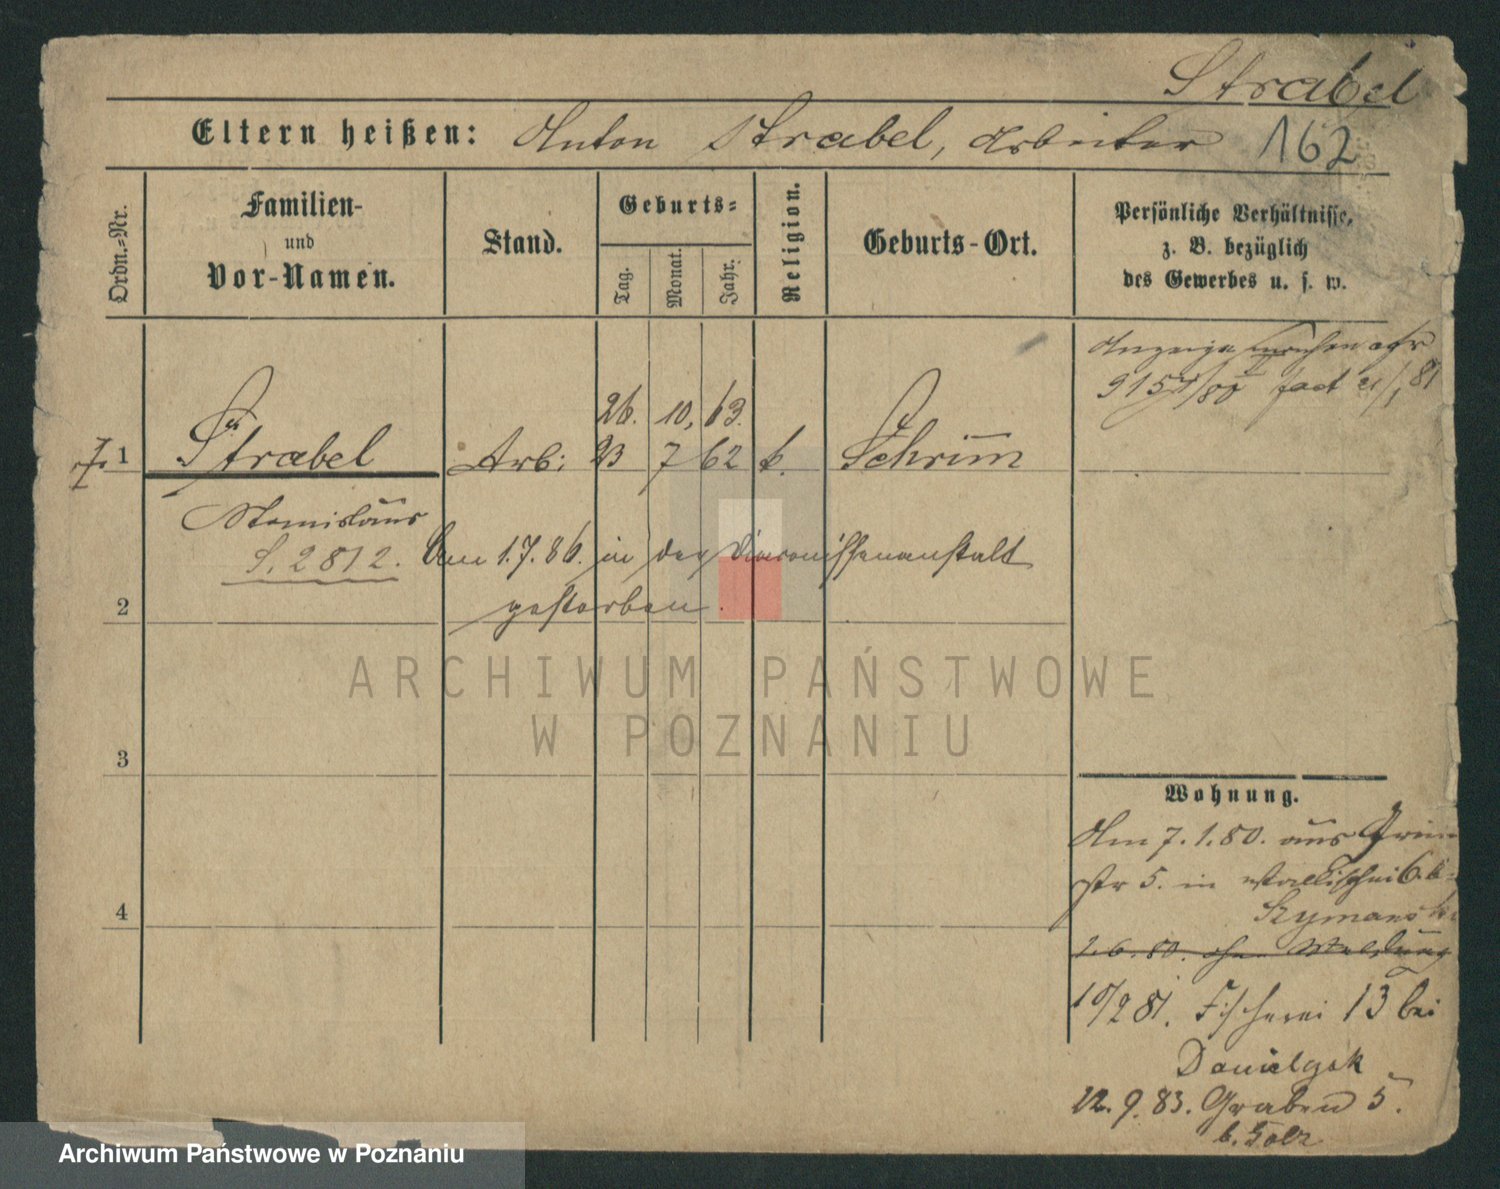 Strabel
Eltern heißen: Anton Strabel, Arbeiter 162
Ordn.=Nr.
Familien-
und
Vor-Namen.
Stand.
Geburts=
Tag.
Monat.
Jahr.
Religion.
Geburts-Ort.
Persönliche Verhältnisse,
z. B. bezüglich
des Gewerbes u. s. w.
Anzeige
26. 10. 63.
1 Strabel Arb: 23 7 62 k. Schrimm
Stanislaus
S. 2812. Am 1.7.86. in der Diaconissenanstalt
gestorben.
2
3
4
ARCHIWUM PAŃSTWOWE
W POZNANIU
Wohnung.
Am 7.1.80. aus
str 5. in Wallischei 6. b
Szymanski
2.6.80. ohne Meldung
10/2 81. Fischerei 13 bei
Danielgak
12.9.83. Graben 5.
b. Golz
Archiwum Państwowe w Poznaniu